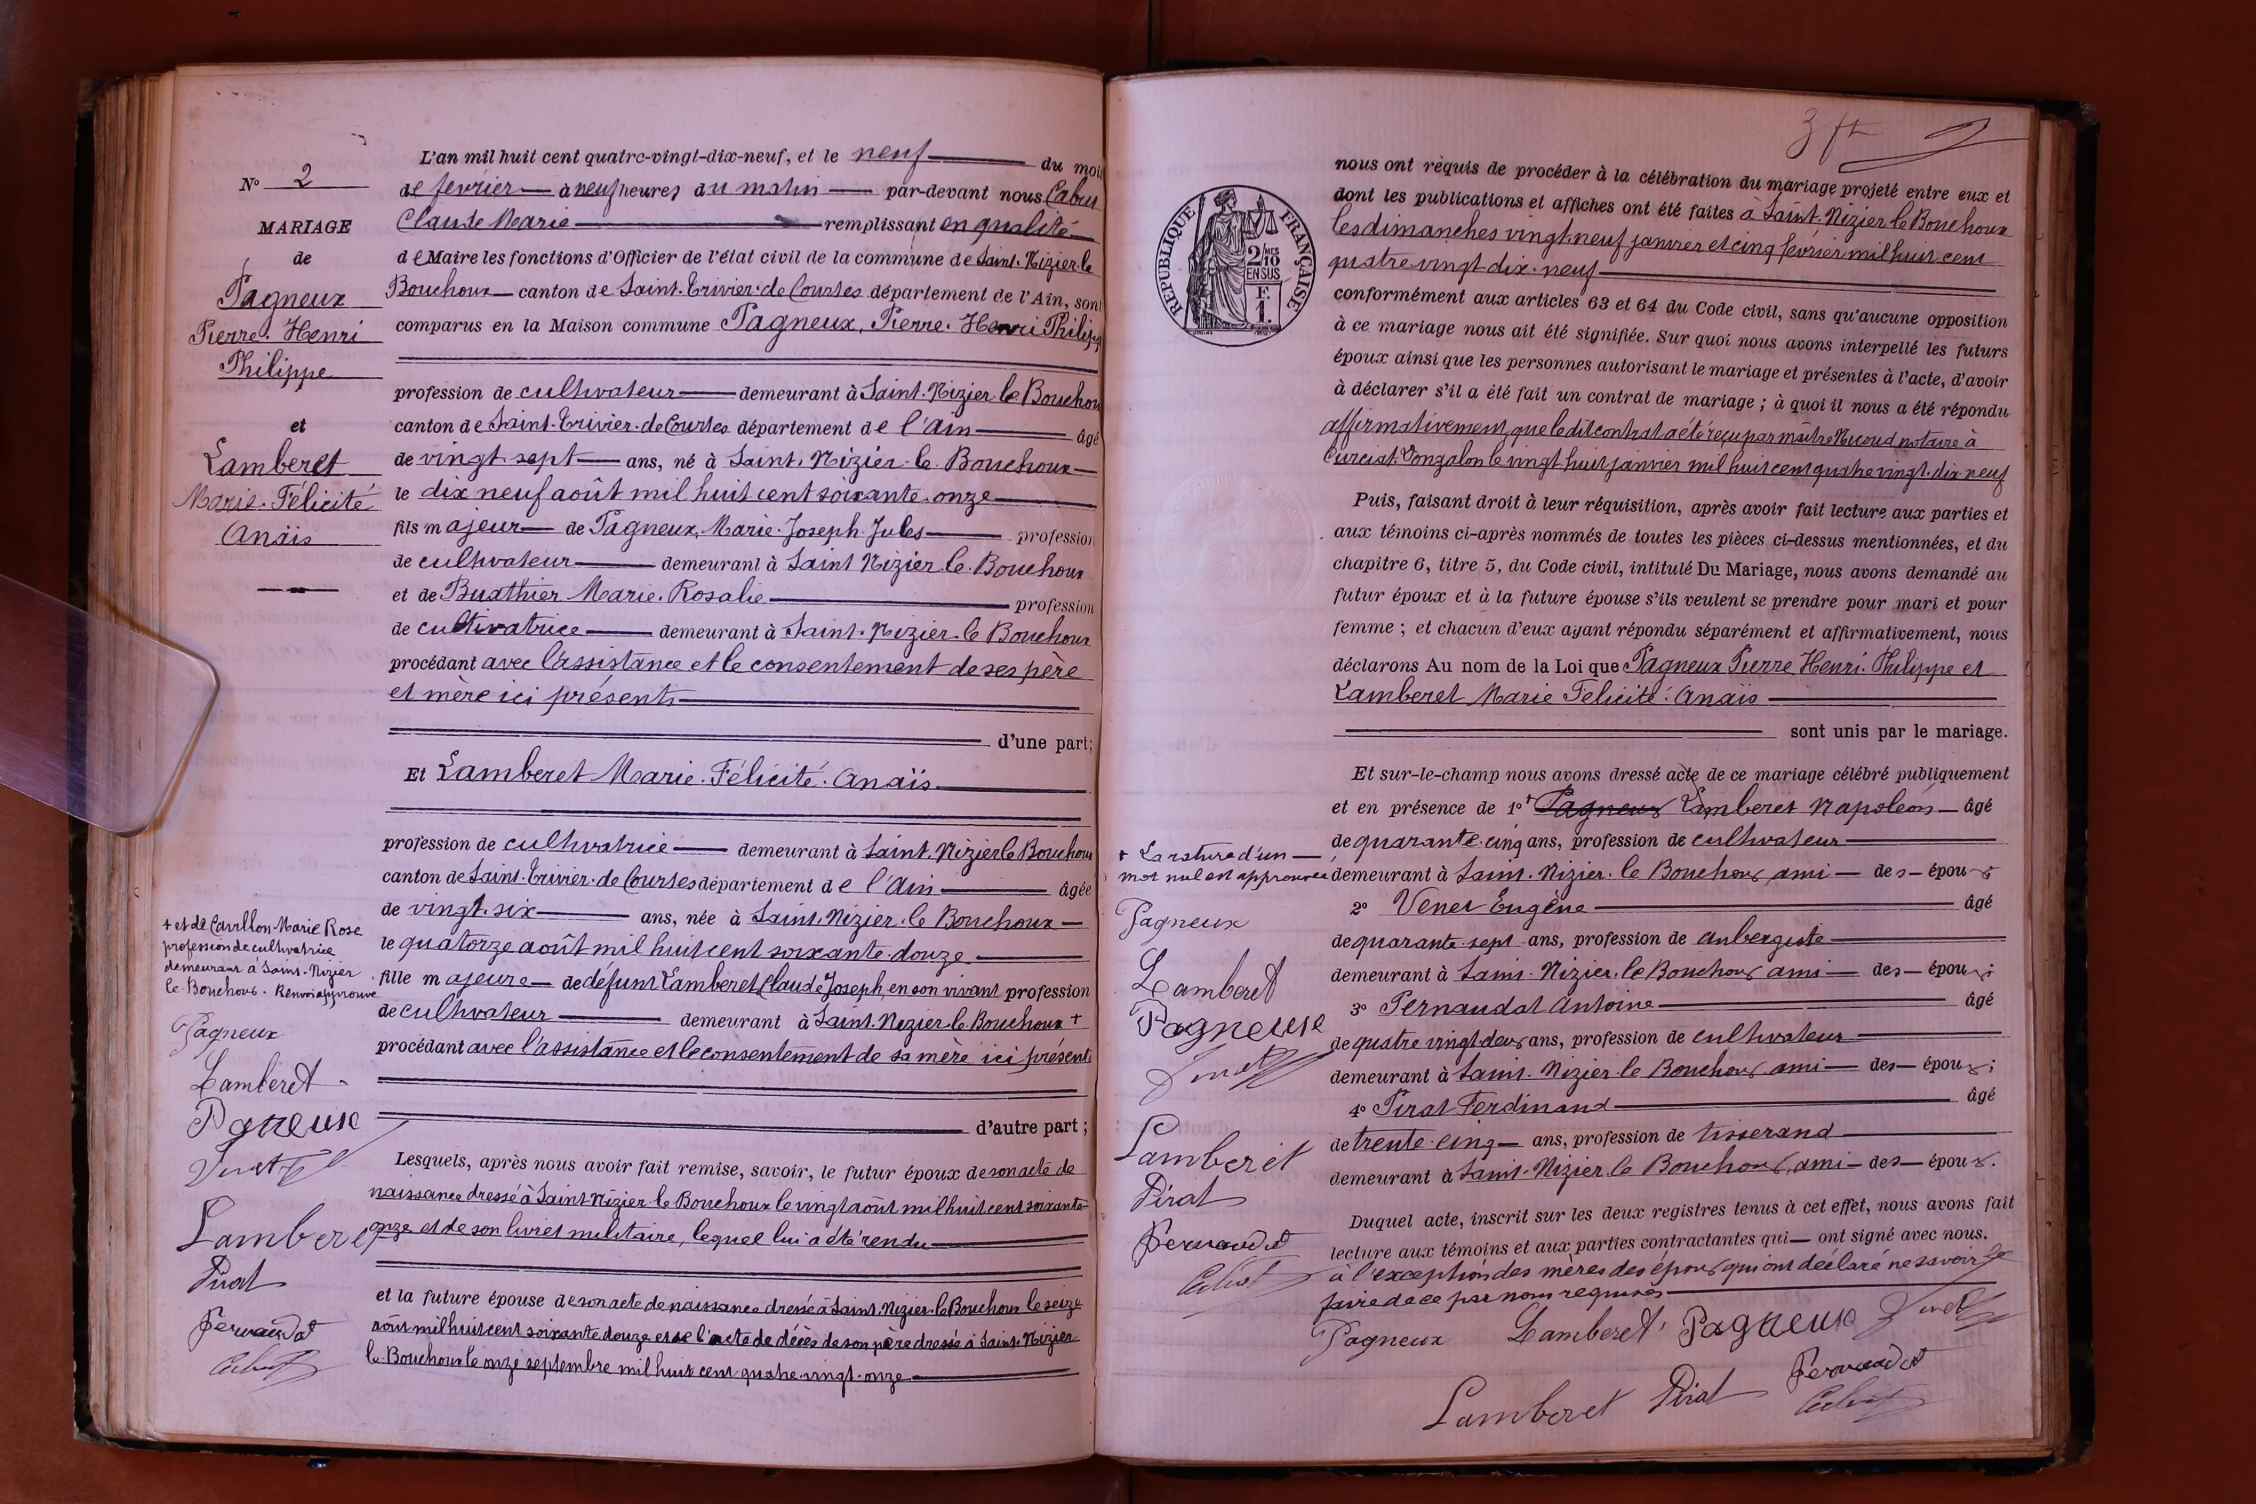 N° 2
MARIAGE
de
Pagneux
Pierre. Henri
Philippe
et
Lamberet
Marie. Félicité
Anaïs
L'an mil huit cent quatre-vingt-dix-neuf, et le neuf du mois
de février à neuf heures du matin par-devant nous
Claude Marie remplissant en qualité
de Maire les fonctions d'Officier de l'état civil de la commune de Saint. Nizier le
Bouchoux canton de Saint. Trivier. de Courtes département de l'Ain, sont
comparus en la Maison commune Pagneux, Pierre. Henri Philippe
profession de cultivateur demeurant à Saint. Nizier le Bouchoux
canton de Saint. Trivier. de Courtes département de l'Ain âgé
de vingt sept ans, né à Saint. Nizier. le Bouchoux
le dix neuf août mil huit cent soixante. onze
fils majeur de Pagneux, Marie. Joseph. Jules profession
de cultivateur demeurant à Saint Nizier le. Bouchoux
et de Buathier Marie. Rosalie profession
de cultivatrice demeurant à Saint. Nizier. le Bouchoux
procédant avec l'assistance et le consentement de ses père
et mère ici présents
d'une part;
Et Lamberet Marie. Félicité. Anaïs
profession de cultivatrice demeurant à Saint. Nizier le Bouchoux
canton de Saint. Trivier. de Courtes département de l'Ain âgée
de vingt. six ans, née à Saint. Nizier. le Bouchoux
le quatorze août mil huit cent soixante. douze
fille majeure de défunt Lamberet Claude Joseph, en son vivant profession
de cultivateur demeurant à Saint. Nizier. le. Bouchoux +
procédant avec l'assistance et le consentement de sa mère ici présente
d'autre part;
+ et de Carillon Marie Rose
profession de cultivatrice
demeurant à Saint. Nizier
le Bouchoux. Renvoi approuvé
Pagneux
Lamberet
Pagneux
Lamberet
Pirat
Pernaudat
Lesquels, après nous avoir fait remise, savoir, le futur époux de son acte de
naissance dressé à Saint Nizier le Bouchoux le vingt août mil huit cent soixante
onze et de son livret militaire, lequel lui a été rendu
et la future épouse de son acte de naissance dressé à Saint. Nizier. le Bouchoux le seize
août mil huit cent soixante douze et de l'acte de décès de son père dressé à Saint. Nizier
le. Bouchoux le onze septembre mil huit cent quatre. vingt. onze
3 ft
REPUBLIQUE FRANÇAISE
2/10 EN SUS
F.
1.
nous ont requis de procéder à la célébration du mariage projeté entre eux et
dont les publications et affiches ont été faites à Saint. Nizier le Bouchoux
les dimanches vingt neuf janvier et cinq février mil huit cent
quatre vingt dix. neuf
conformément aux articles 63 et 64 du Code civil, sans qu'aucune opposition
à ce mariage nous ait été signifiée. Sur quoi nous avons interpellé les futurs
époux ainsi que les personnes autorisant le mariage et présentes à l'acte, d'avoir
à déclarer s'il a été fait un contrat de mariage; à quoi il nous a été répondu
affirmativement, que le dit contrat a été reçu par maître notaire à
Curciat. Dongalon le vingt huit janvier mil huit cent quatre vingt. dix neuf
Puis, faisant droit à leur réquisition, après avoir fait lecture aux parties et
aux témoins ci-après nommés de toutes les pièces ci-dessus mentionnées, et du
chapitre 6, titre 5, du Code civil, intitulé Du Mariage, nous avons demandé au
futur époux et à la future épouse s'ils veulent se prendre pour mari et pour
femme; et chacun d'eux ayant répondu séparément et affirmativement, nous
déclarons Au nom de la Loi que Pagneux Pierre Henri. Philippe et
Lamberet Marie Félicité. Anaïs
sont unis par le mariage.
Et sur-le-champ nous avons dressé acte de ce mariage célébré publiquement
et en présence de 1° + Pagneux Lamberet Napoléon âgé
de quarante. cinq ans, profession de cultivateur
demeurant à Saint. Nizier. le Bouchoux, ami des époux
2° Venet Eugène âgé
de quarante. sept ans, profession de aubergiste
demeurant à Saint. Nizier. le Bouchoux ami des époux;
3° Pernaudat Antoine âgé
de quatre vingt deux ans, profession de cultivateur
demeurant à Saint. Nizier le Bouchoux, ami des époux;
4° Pirat Ferdinand âgé
de trente. cinq ans, profession de tisserand
demeurant à Saint. Nizier le Bouchoux, ami des époux.
+ La rature d'un
mot nul est approuvée
Pagneux
Lamberet
Pagneux
Lamberet
Pirat
Pernaudat
Duquel acte, inscrit sur les deux registres tenus à cet effet, nous avons fait
lecture aux témoins et aux parties contractantes qui ont signé avec nous.
à l'exception des mères des époux qui ont déclaré ne savoir le
faire de ce par nous requises
Pagneux Lamberet Pagneux
Lamberet Pirat Pernaudat